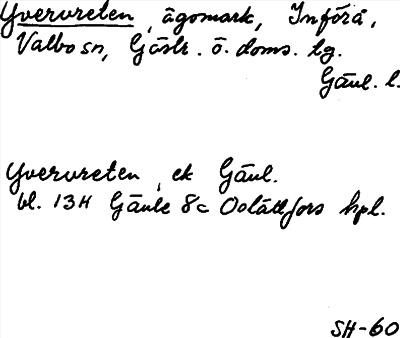 Yvervreten, ägomark, Införå,
Valbo sn, Gästr. ö. doms. tg.
Gävl. l.
Yvervreten, ek Gävl.
bl. 13H Gävle 8c Oslättfors hpl.
SH-60